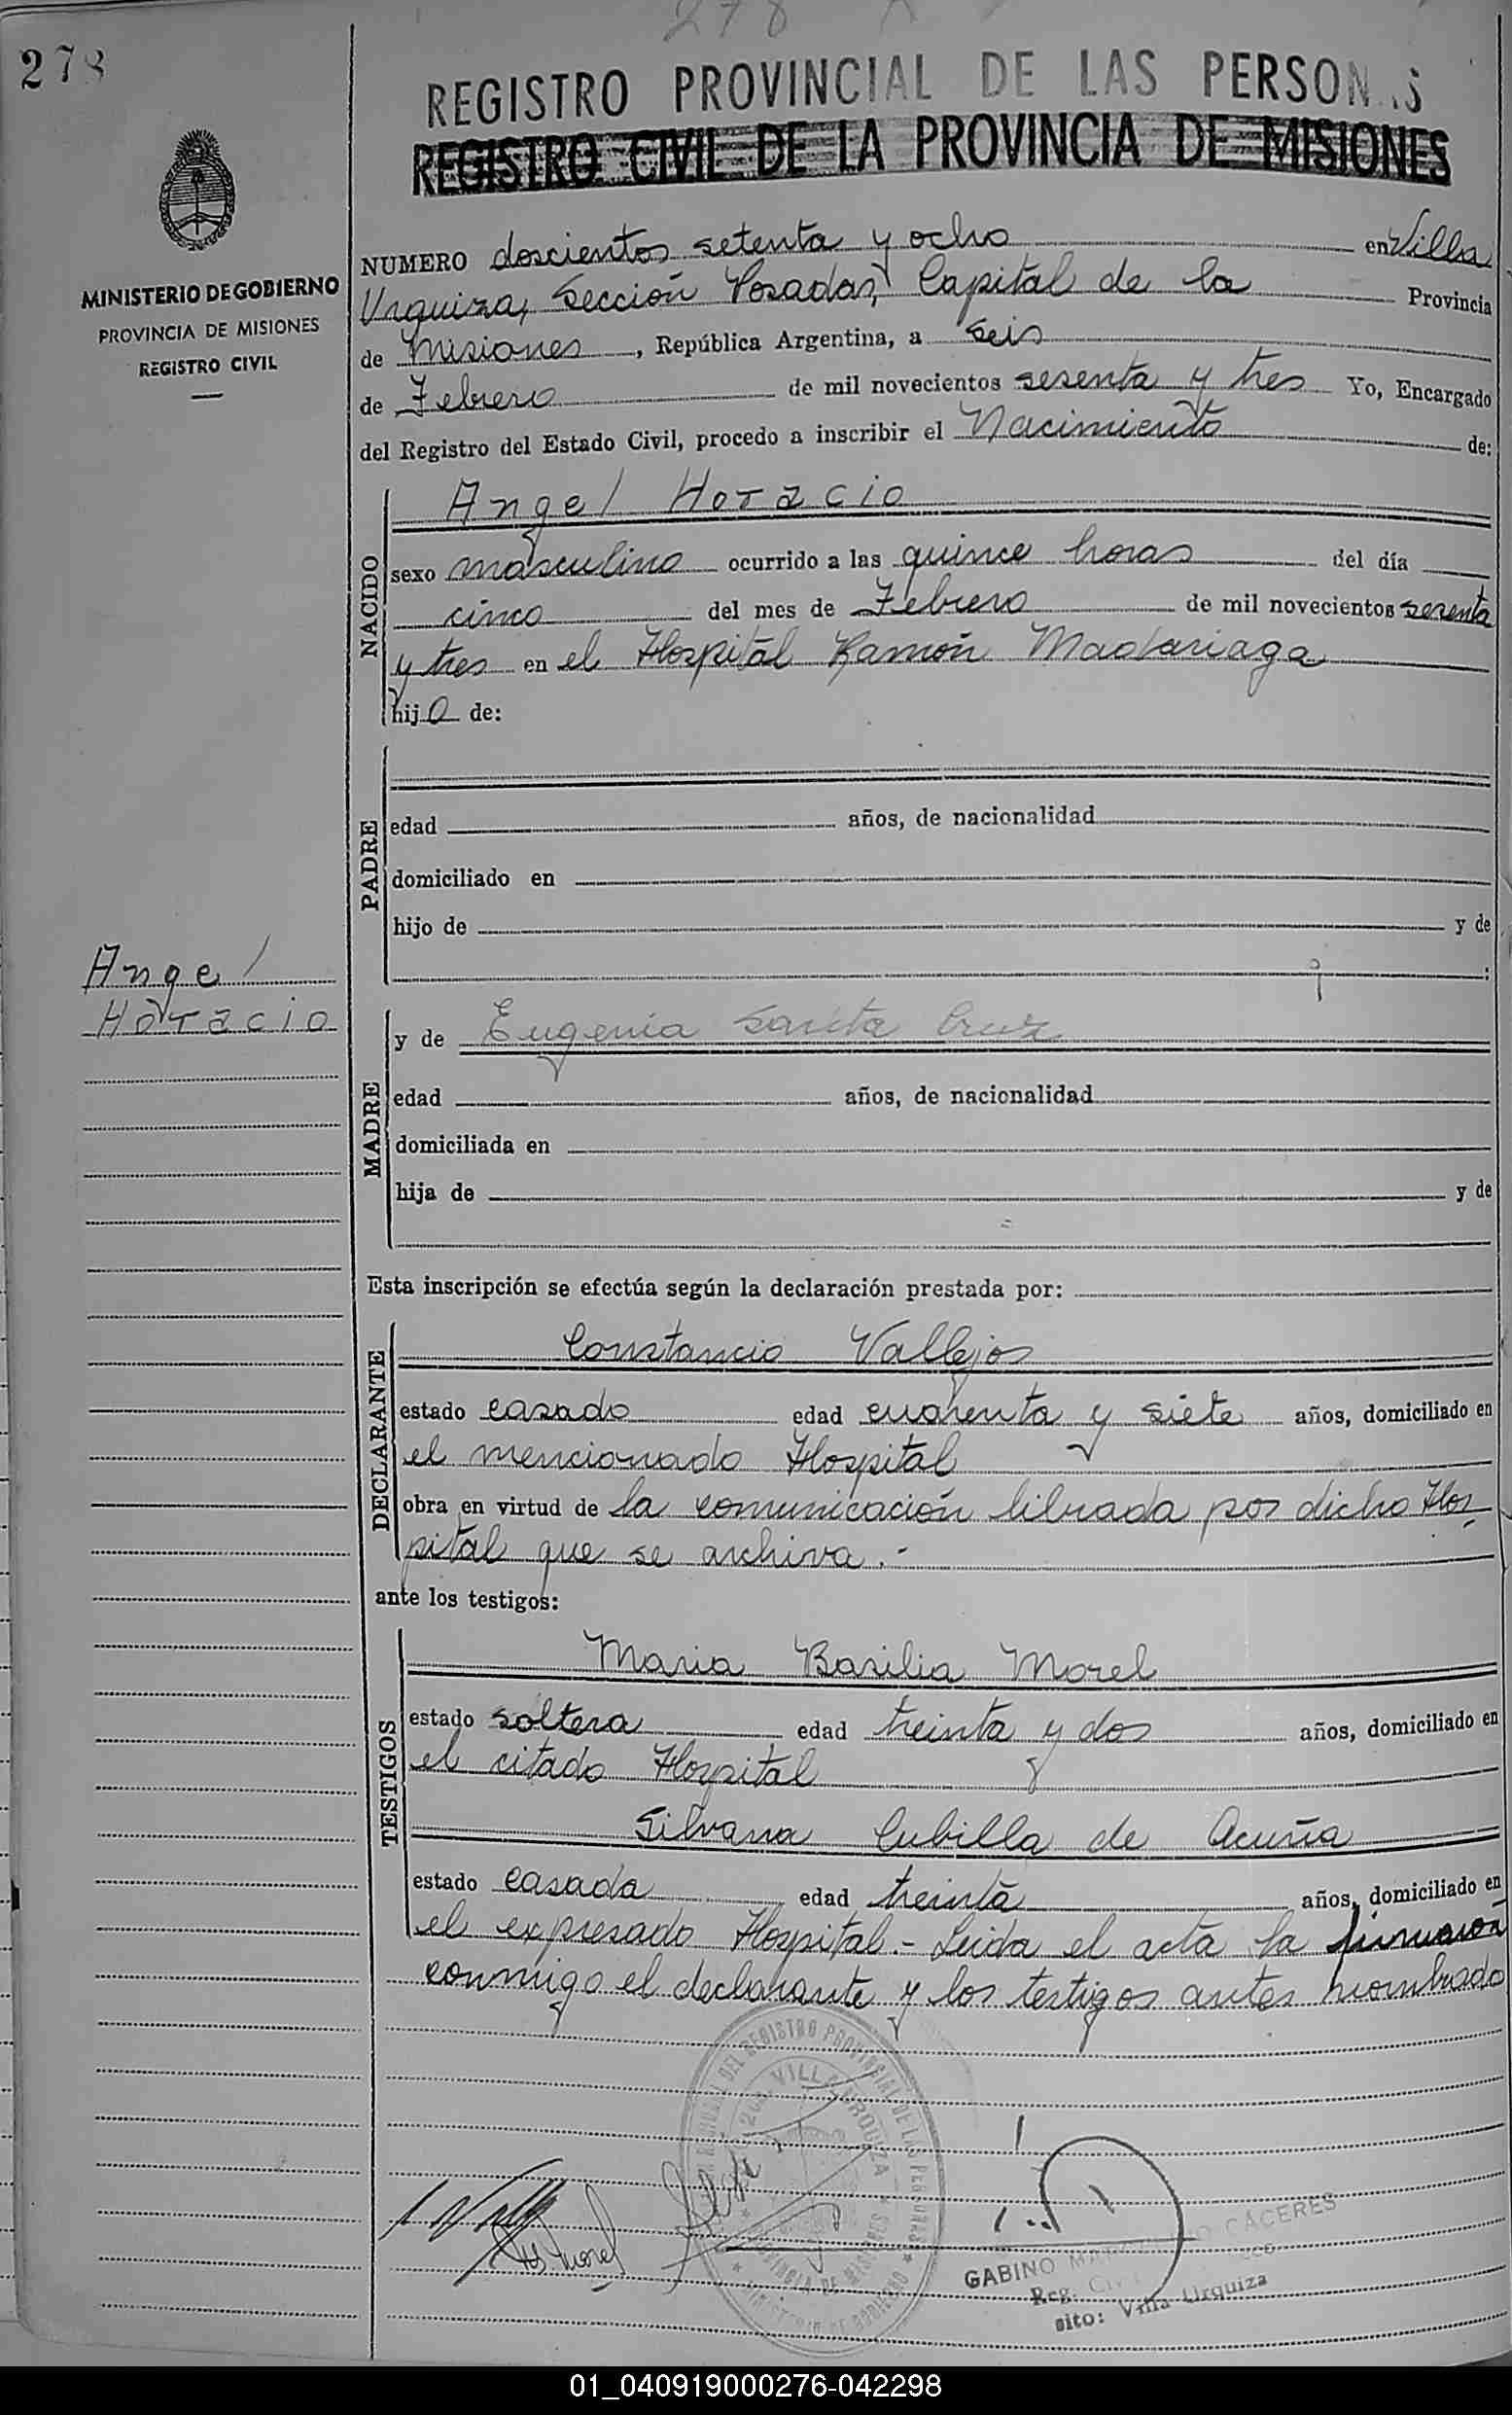 278
278
REGISTRO PROVINCIAL DE LAS PERSONAS
REGISTRO CIVIL DE LA PROVINCIA DE MISIONES
MINISTERIO DE GOBIERNO
PROVINCIA DE MISIONES
REGISTRO CIVIL
NUMERO doscientos setenta y ocho en Villa
Urquiza, Sección Posadas, Capital de la Provincia
de Misiones, República Argentina, a seis
de Febrero de mil novecientos sesenta y tres Yo, Encargado
del Registro del Estado Civil, procedo a inscribir el Nacimiento de:
NACIDO
Angel Horacio
sexo masculino ocurrido a las quince horas del día
cinco del mes de Febrero de mil novecientos sesenta
y tres en el Hospital Ramón Madariaga
hijo de:
PADRE
edad años, de nacionalidad
domiciliado en
hijo de y de
:
Angel
Horacio
MADRE
y de Eugenia Santa Cruz
edad años, de nacionalidad
domiciliada en
hija de y de
Esta inscripción se efectúa según la declaración prestada por:
DECLARANTE
Constancio Vallejos
estado casado edad cuarenta y siete años, domiciliado en
el mencionado Hospital
obra en virtud de la comunicación librada por dicho Hos-
pital que se archiva.-
ante los testigos:
TESTIGOS
Maria Basilia Morel
estado soltera edad treinta y dos años, domiciliado en
el citado Hospital
Silvana Cubilla de Acuña
estado casada edad treinta años, domiciliado en
el expresado Hospital.- Leida el acta la firmaron
conmigo el declarante y los testigos antes nombrado
DEL REGISTRO PROVINCIAL DE LAS PERSONAS
VILLA URQUIZA
PROVINCIA DE MISIONES
MINISTERIO DE GOBIERNO
Morel
GABINO CACERES
Reg. Civil
sito: Villa Urquiza
01_040919000276-042298